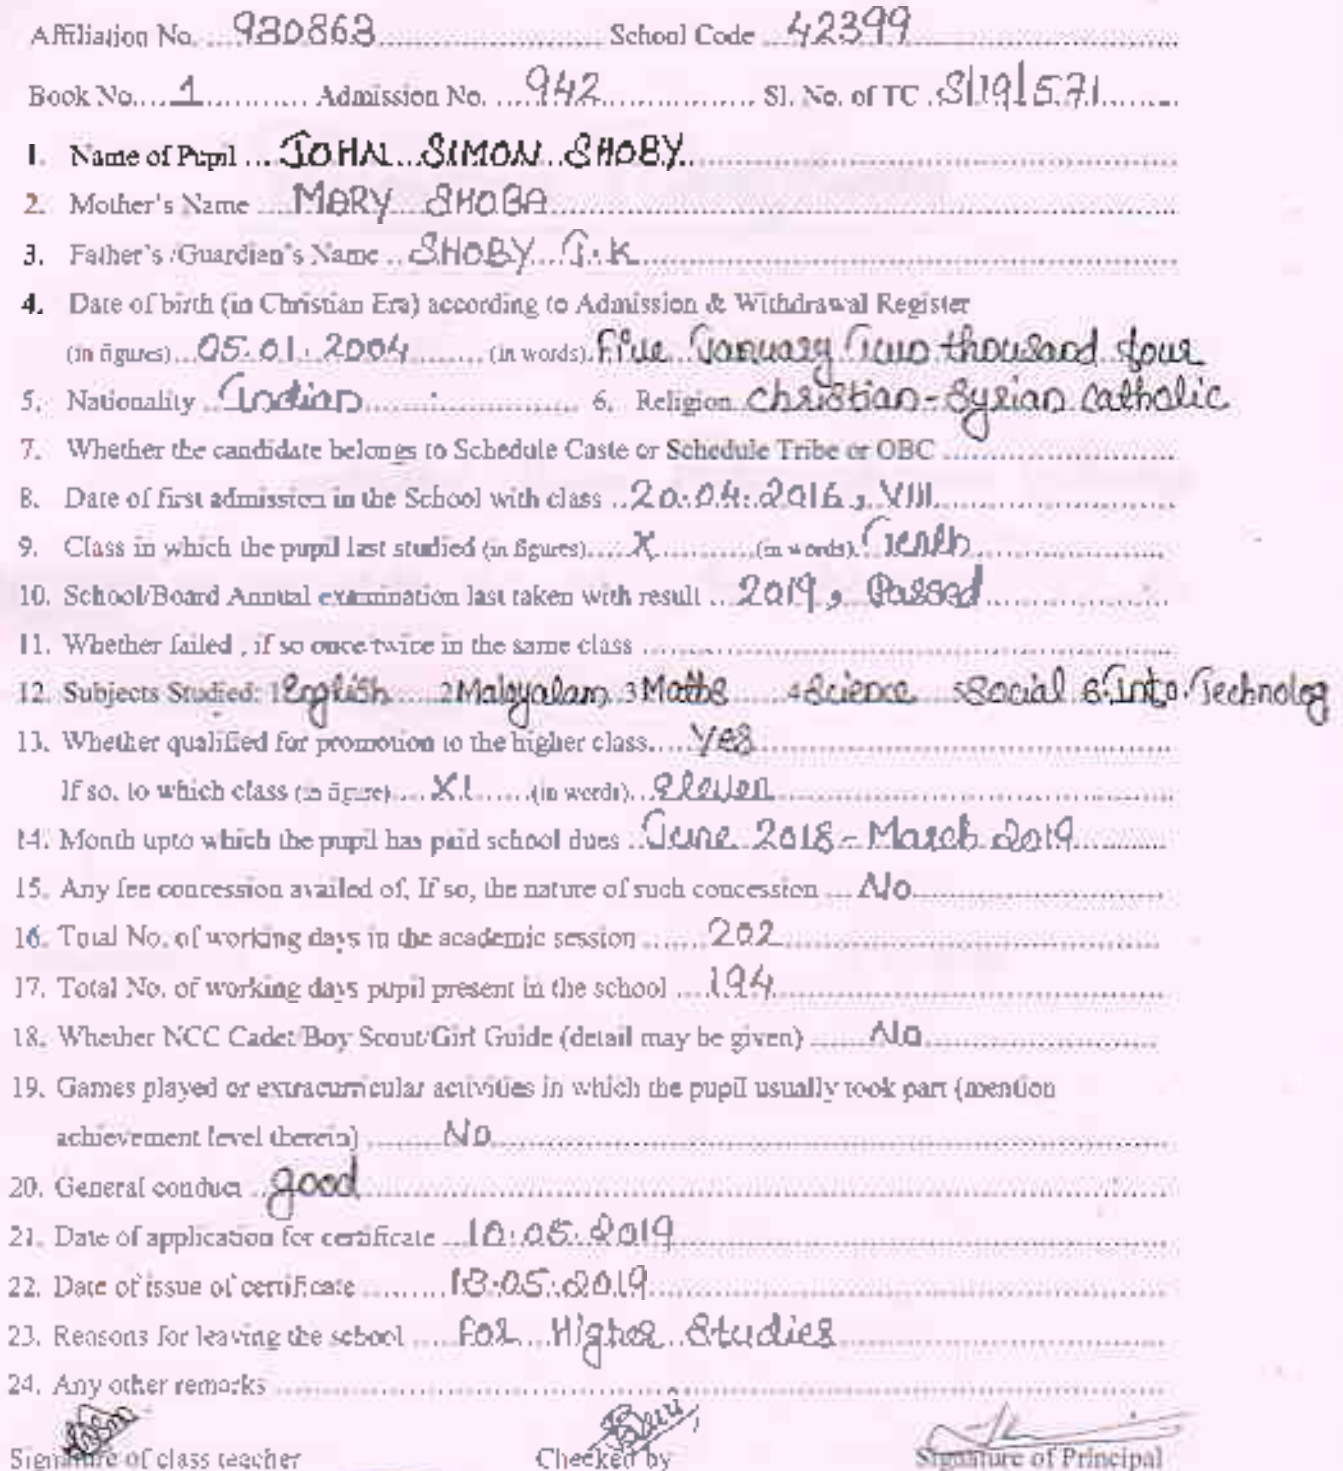 Affiliation No. 930863 School Code 42399
Book No. 1 Admission No. 942 Sl. No. of TC S/19/571
1. Name of Pupil JOHN SIMON SHOBY
2. Mother's Name MARY SHOBA
3. Father's /Guardian's Name SHOBY J.K
4. Date of birth (in Christian Era) according to Admission & Withdrawal Register
(in figures) 05.01.2004 (in words) Five January Two thousand four
5. Nationality Indian 6. Religion Christian-Syrian Catholic
7. Whether the candidate belongs to Schedule Caste or Schedule Tribe or OBC
8. Date of first admission in the School with class 20.04.2016, VIII
9. Class in which the pupil last studied (in figures) X (in words) Tenth
10. School/Board Annual examination last taken with result 2019, Passed
11. Whether failed , if so once/twice in the same class
12. Subjects Studied: 1 English 2 Malayalam 3 Maths 4 Science 5 Social 6 Info Technolog
13. Whether qualified for promotion to the higher class Yes
If so, to which class (in figure) XI (in words) eleven
14. Month upto which the pupil has paid school dues June 2018 - March 2019
15. Any fee concession availed of, If so, the nature of such concession No
16. Total No. of working days in the academic session 202
17. Total No. of working days pupil present in the school 194
18. Whether NCC Cadet/Boy Scout/Girl Guide (detail may be given) No
19. Games played or extracurricular activities in which the pupil usually took part (mention
achievement level therein) No
20. General conduct good
21. Date of application for certificate 10.05.2019
22. Date of issue of certificate 13.05.2019
23. Reasons for leaving the school For Higher Studies
24. Any other remarks
Signature of class teacher Checked by Signature of Principal